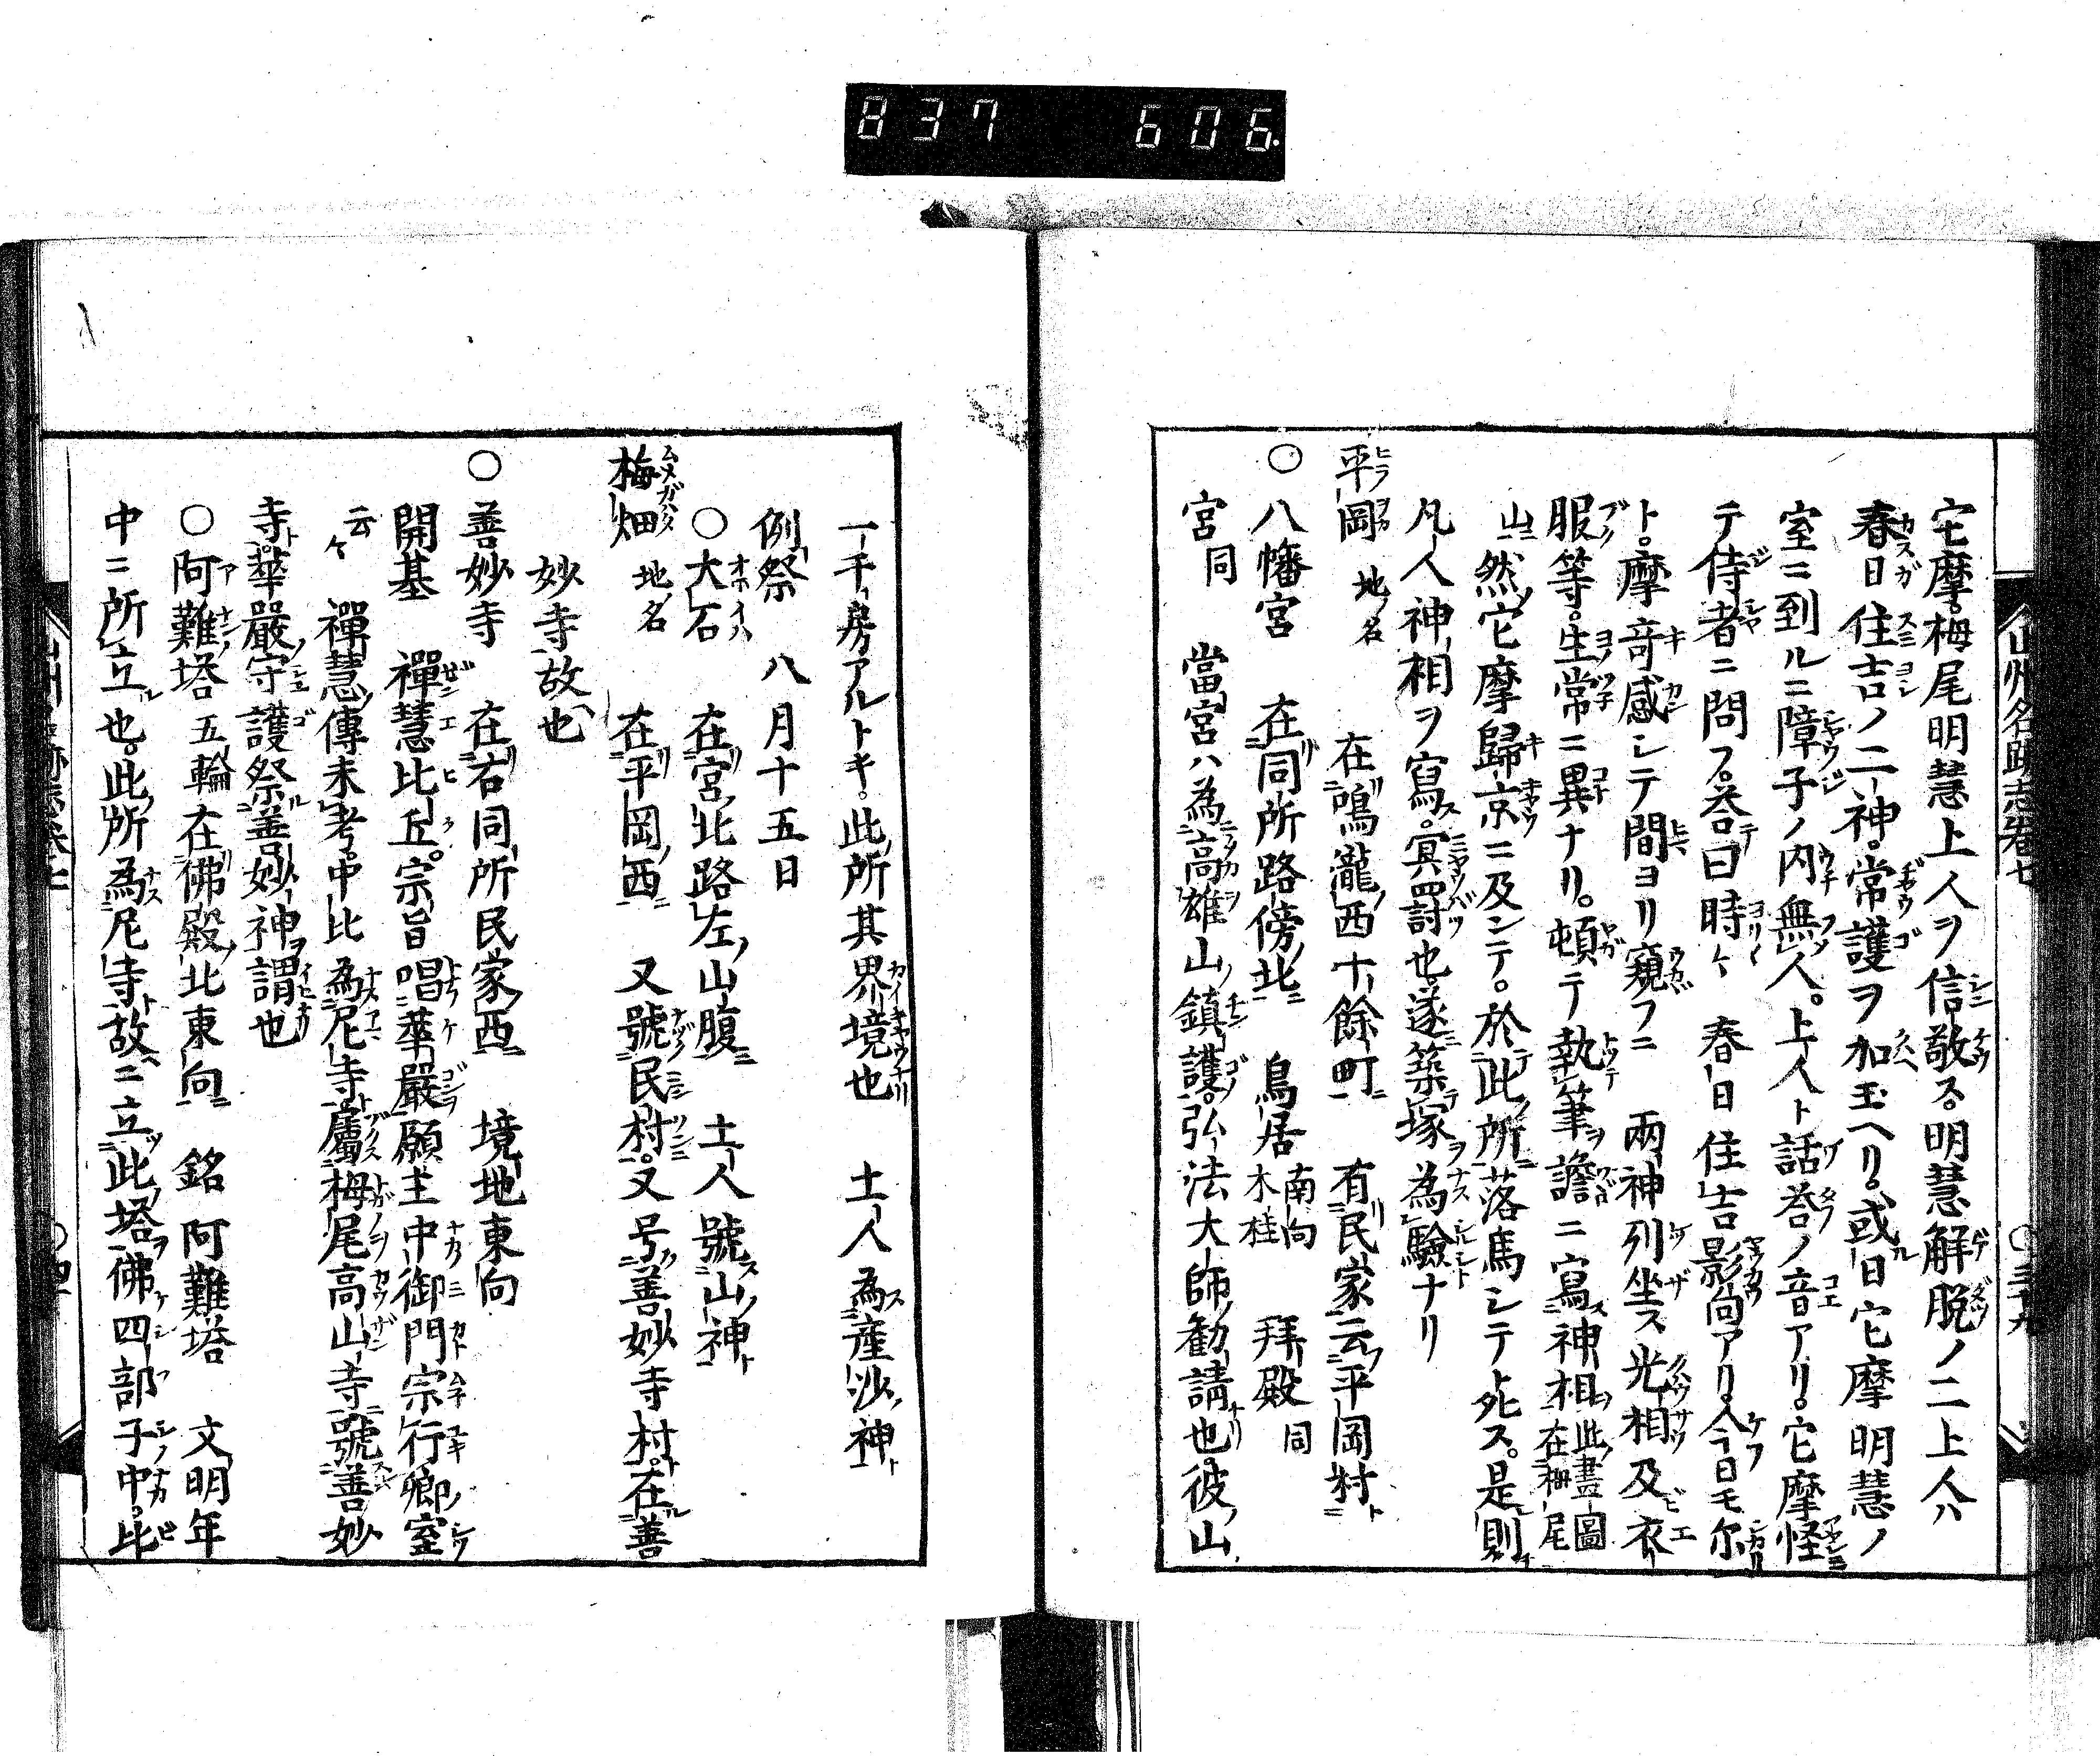 837 606.
宅摩栂尾明慧上人ヲ信敬ス。明慧解脱ノ二上人ハ
春日住吉ノ二神常護ヲ加玉ヘリ。或日宅摩明慧ノ
室ニ到ルニ障子ノ内無人。上人ト話荅ノ音アリ。宅摩怪
テ侍者ニ問フ。荅曰時々春日住吉影向アリ。今日モ尓
ト。摩竒感シテ間ヨリ窺フニ兩神列坐ス光相及衣
服等。生常ニ異ナリ。頓テ執筆譫ニ寫神相此畫圖在栂尾
山然宅摩歸京ニ及ンテ。於此所落馬シテ死ス。是則
凡人神相ヲ寫ス。冥罸也。遂築塚為驗ナリ
平岡 地名 在鳴瀧西十餘町 有民家云平岡村
○八幡宮 在同所路傍北 鳥居 南向木柱 拜殿 同
宮 同 當宮ハ為高雄山鎮護。弘法大師勸請也。彼山
山州名跡志卷七 ○三十九
一千房アルトキ。此所其界境也 土人為産沙神
例祭 八月十五日
○大石 在宮北路左山腹 土人號山神
梅畑 地名 在平岡西 又號民村。又号善妙寺村。在善
妙寺故也
○善妙寺 在右同所民家西 境地東向
開基 禪慧比丘。宗旨唱華嚴願主中御門宗行卿室
云々 禪慧傳未考。中比為尼寺屬栂尾高山寺號善妙
寺。華嚴守護祭善妙神謂也
○阿難塔 五輪 在佛殿北東向 銘 阿難塔 文明年
中ニ所立也。此所為尼寺故ニ立此塔佛四部子中。比